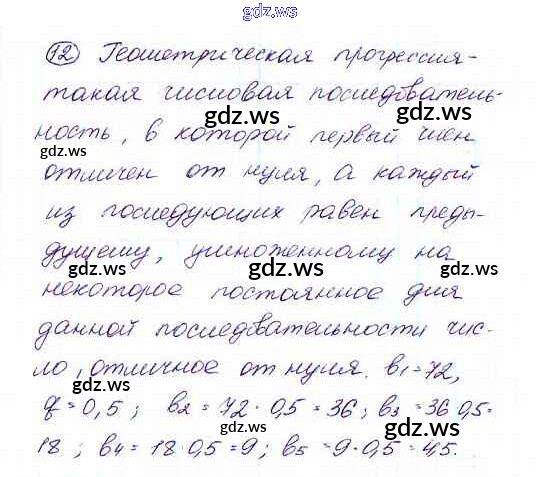 gdz.ws
12 Геометрическая прогрессия-
такая числовая последователь-
gdz.ws gdz.ws
ность, в которой первый член
gdz.ws
отличен от нуля, а каждый
из последующих равен преды-
дущему, умноженному на
gdz.ws gdz.ws gdz.ws
некоторое постоянное для
данной последовательности чис-
ло, отличное от нуля. b1=72,
gdz.ws gdz.ws
q=0,5; b2=72·0,5=36; b3=36·0,5=
18; b4=18·0,5=9; b5=9·0,5=4,5.
gdz.ws gdz.ws